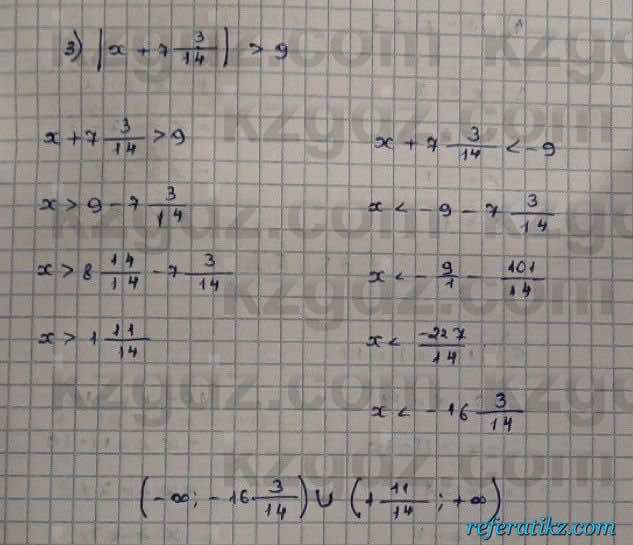 3) |x + 7 3/14| > 9
x + 7 3/14 > 9
x > 9 - 7 3/14
x > 8 14/14 - 7 3/14
x > 1 11/14
x + 7 3/14 < -9
x < -9 - 7 3/14
x < - 9/1 - 101/14
x < -227/14
x < -16 3/14
(-∞; -16 3/14) ∪ (1 11/14; +∞)
kzgdz.com
referatikz.com